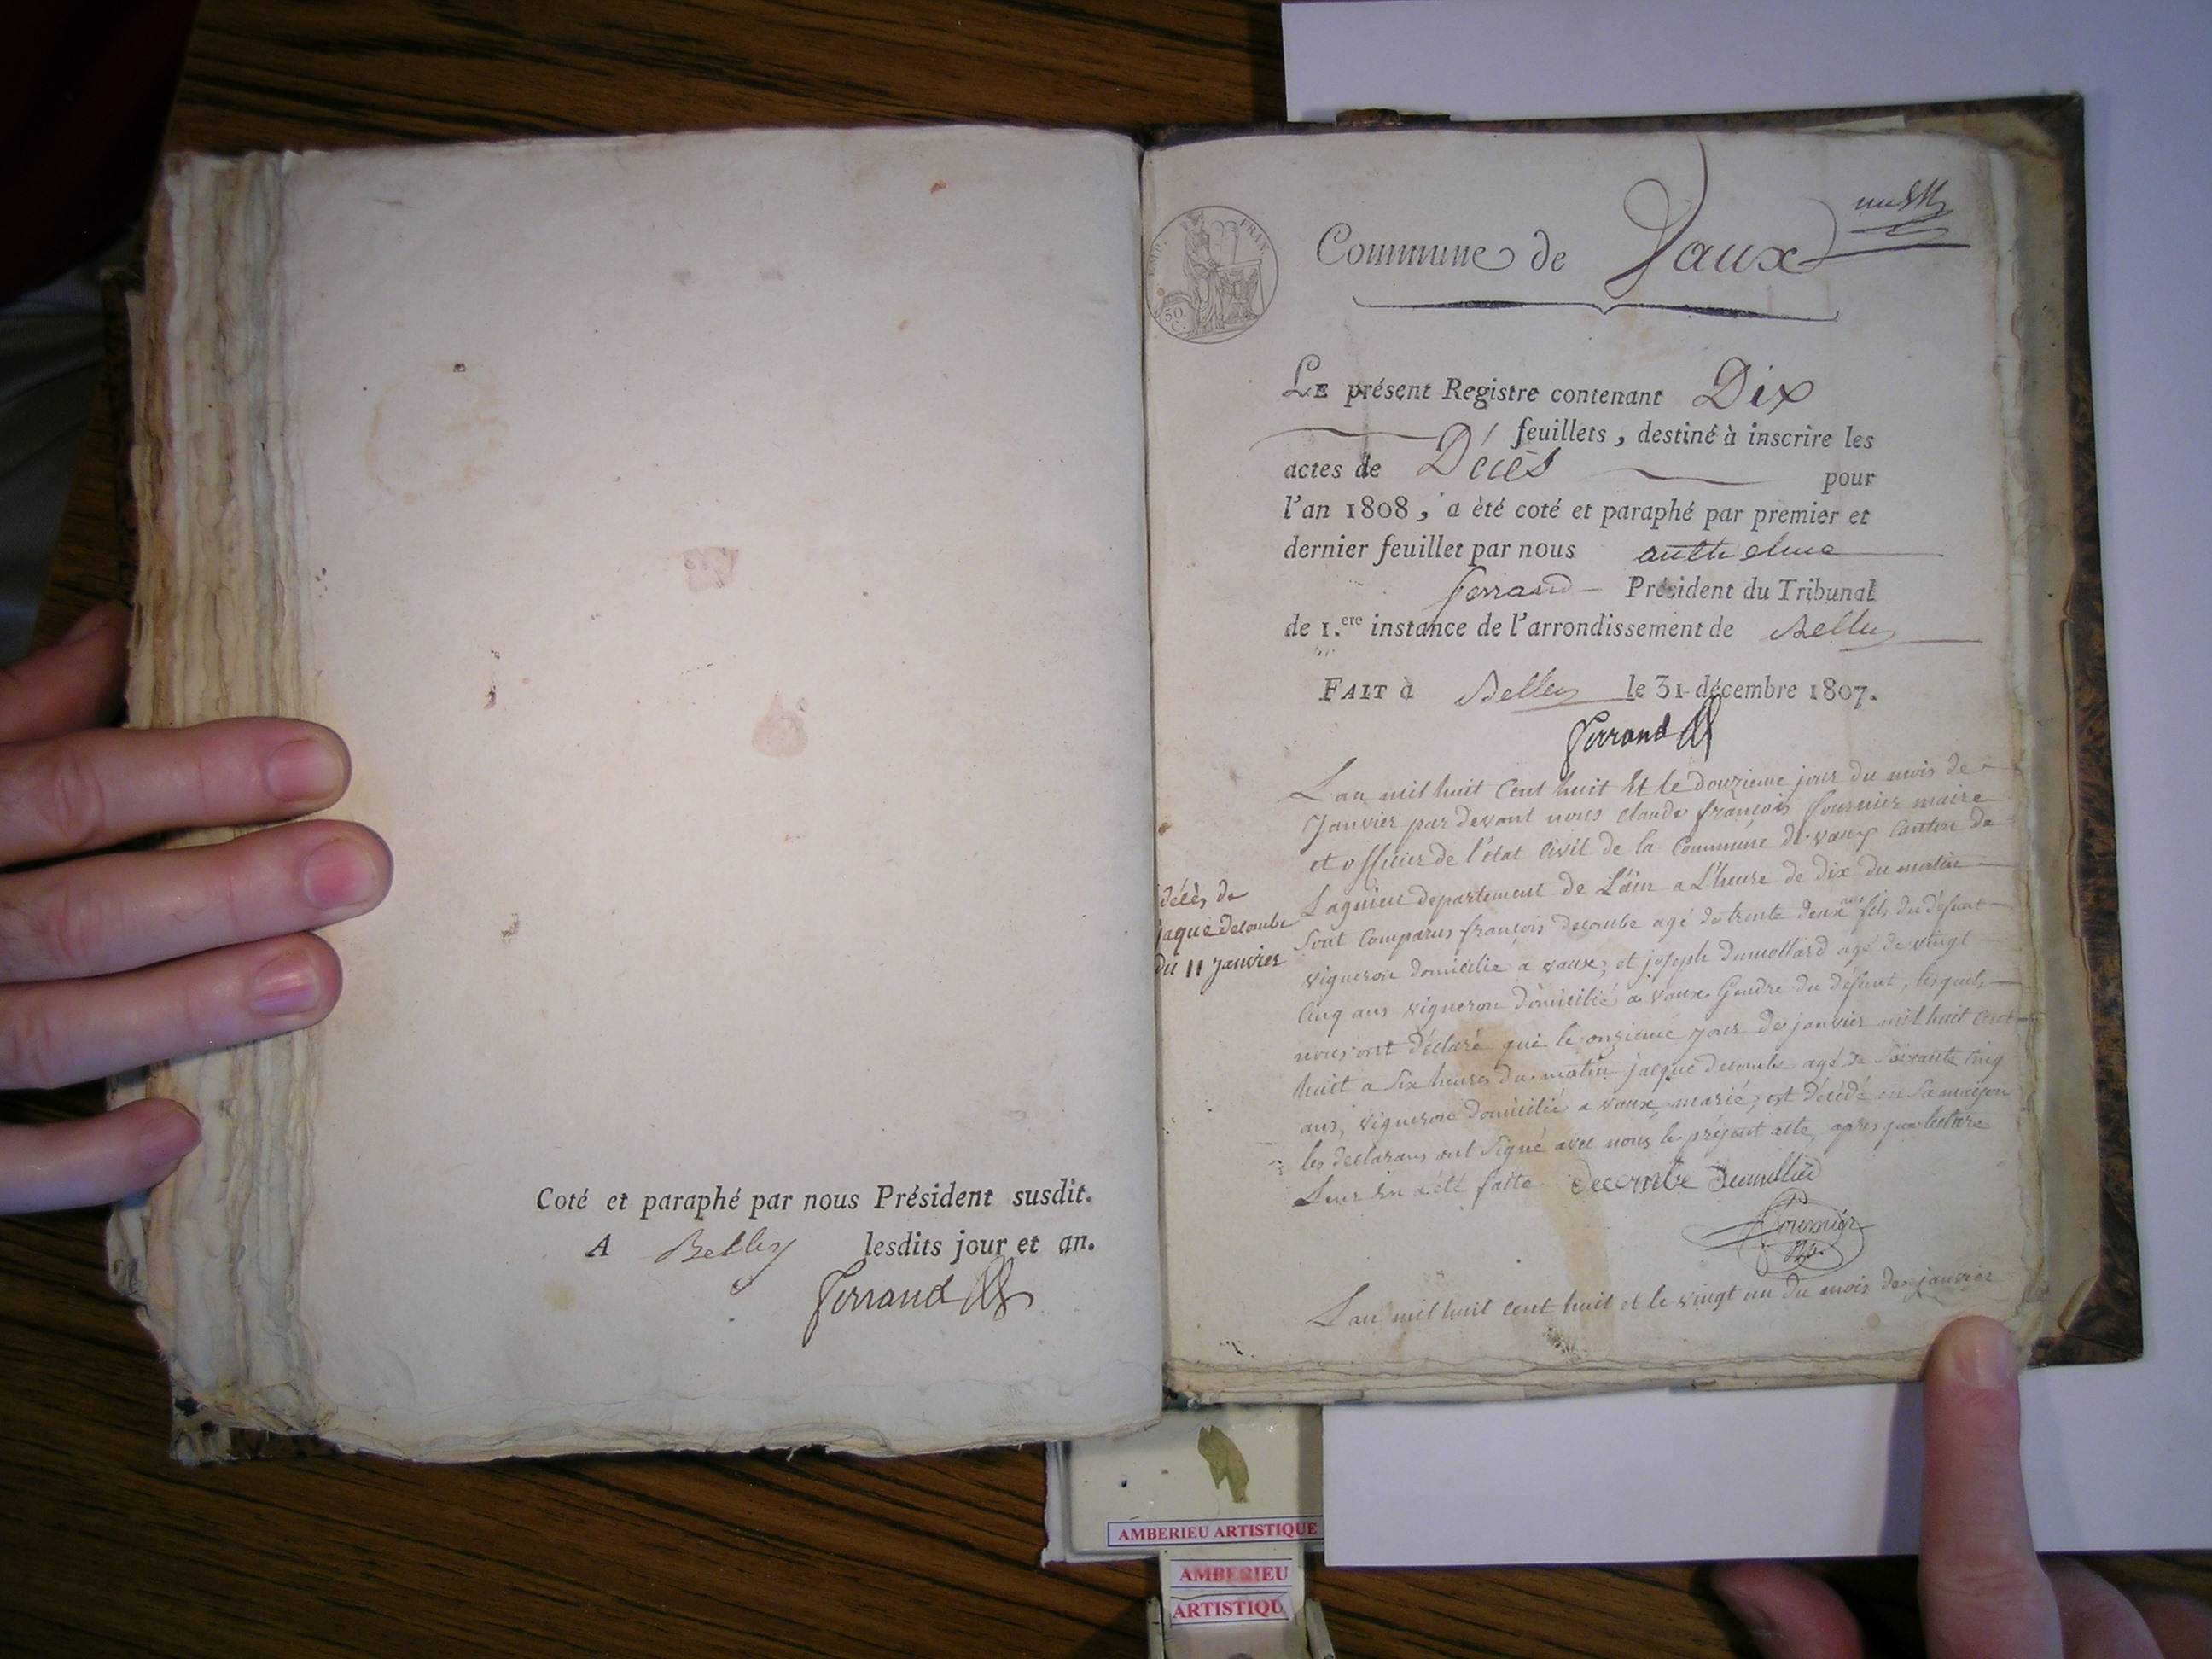 Coté et paraphé par nous Président susdit.
A Belley lesdits jour et an.
Ferrand
EMP. FRAN.
50
C.
Commune de Vaux
LE présent Registre contenant Dix
feuillets, destiné à inscrire les
actes de Décès pour
l'an 1808, a été coté et paraphé par premier et
dernier feuillet par nous anthelme
ferrand Président du Tribunal
de 1.ere instance de l'arrondissement de Belley
FAIT à Belley le 31 décembre 1807.
Ferrand
Lan mil huit Cent huit Et le douzieme jour du mois de
Janvier par devant nous claude françois fournier maire
et officier de l'état Civil de la Commune de vaux Canton de
Lagnieu departement de L'ain a L'heure de dix du matin
décès de
jaque decombe
du 11 Janvier
Sont Comparus françois decombe agé de trente deux fils du défunt
vigneron domicilié a vaux, et joseph dumollard agé de vingt
Cinq ans vigneron domicilié a vaux Gendre du défunt, lesquels
nous ont déclaré que le onzieme jour de janvier mil huit cent
huit a Six heures du matin jacque decombe agé de Soixante cinq
ans, vigneron domicilié a vaux, marié, est décédé en Sa maison
les declarans ont Signé avec nous le présent acte, après que lecture
Leur En a été faitte decombe Dumollard
Fournier
Lan mil huit cent huit et le vingt un du mois de janvier
AMBERIEU ARTISTIQUE
AMBERIEU
ARTISTIQU